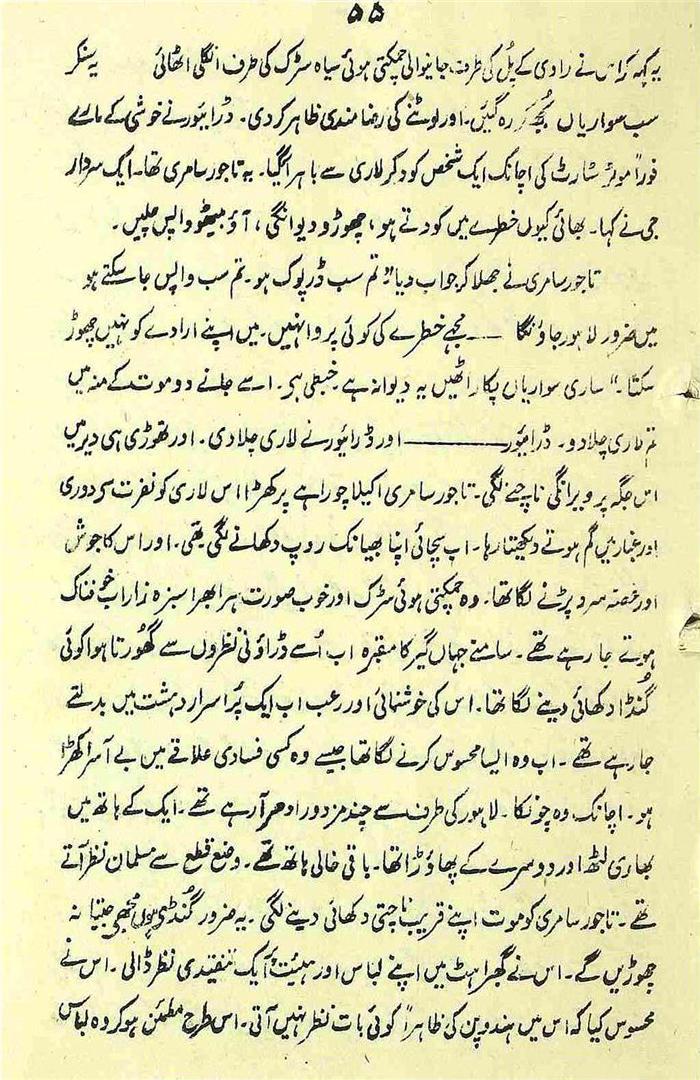 ۵۵
یہ کہہ کر اس نے راوی کے پُل کی طرف جانیوالی چمکتی ہوئی سیاہ سڑک کی طرف انگلی اٹھائی یہ سنکر
سب سواریاں بُجھ کر رہ گئیں۔ اور لوٹنے کی رضامندی ظاہر کر دی۔ ڈرائیور نے خوشی کے مارے
فوراً موٹر سٹارٹ کی اچانک ایک شخص کود کر لاری سے باہر آگیا۔ یہ تاجور سامری تھا۔ ایک سردار
جی نے کہا۔ بھائی کیوں خطرے میں کودتے ہو، چھوڑو دیوانگی، آؤ بیٹھو واپس چلیں۔
تاجور سامری نے جھلا کر جواب دیا "تم سب ڈرپوک ہو۔ تم سب واپس جا سکتے ہو
میں ضرور لاہور جاؤنگا ــــ مجھے خطرے کی کوئی پروا نہیں۔ میں اپنے ارادے کو نہیں چھوڑ
سکتا۔" ساری سواریاں پکار اٹھیں یہ دیوانہ ہے خبطی ہی۔ اسے جانے دو موت کے منہ میں
تم لاری چلا دو۔ ڈرائیور ــــــــــ اور ڈرائیور نے لاری چلا دی۔ اور تھوڑی ہی دیر میں
اس جگہ پر ویرانگی ناچنے لگی۔ تاجور سامری اکیلا چوراہے پر کھڑا اس لاری کو نفرت سی دوری
اور غبار میں گم ہوتے دیکھتا رہا۔ اب سچائی اپنا بھیانک روپ دکھانے لگی تھی۔ اور اس کا جوش
اور غصہ سرد پڑنے لگا تھا۔ وہ چمکتی ہوئی سڑک اور خوب صورت ہرا بھرا سبزہ زار اب خوفناک
ہوتے جا رہے تھے۔ سامنے جہاں گیر کا مقبرہ اب اُسے ڈراؤنی نظروں سے گھُورتا ہوا کوئی
گُنڈا دکھائی دینے لگا تھا۔ اس کی خوشنمائی اور رعب اب ایک پُر اسرار دہشت میں بدلتے
جا رہے تھے۔ اب وہ ایسا محسوس کرنے لگا تھا جیسے وہ کسی فسادی علاقے میں بے آسرا کھڑا
ہو۔ اچانک وہ چونکا۔ لاہور کی طرف سے چند مزدور ادھر آرہے تھے۔ ایک کے ہاتھ میں
بھاری لٹھ اور دوسرے کے پھاوڑا تھا۔ باقی خالی ہاتھ تھے۔ وضع قطع سے مسلمان نظر آتے
تھے۔ تاجور سامری کو موت اپنے قریب ناچتی دکھائی دینے لگی۔ یہ ضرور گنڈے ہیں مجھے جیتا نہ
چھوڑیں گے۔ اس نے گھبراہٹ میں اپنے لباس اور ہیئت پر ایک تنقیدی نظر ڈالی۔ اس نے
محسوس کیا کہ اس میں ہندوپن کی ظاہراً کوئی بات نظر نہیں آتی۔ اس طرح مطمئن ہو کر وہ لباس